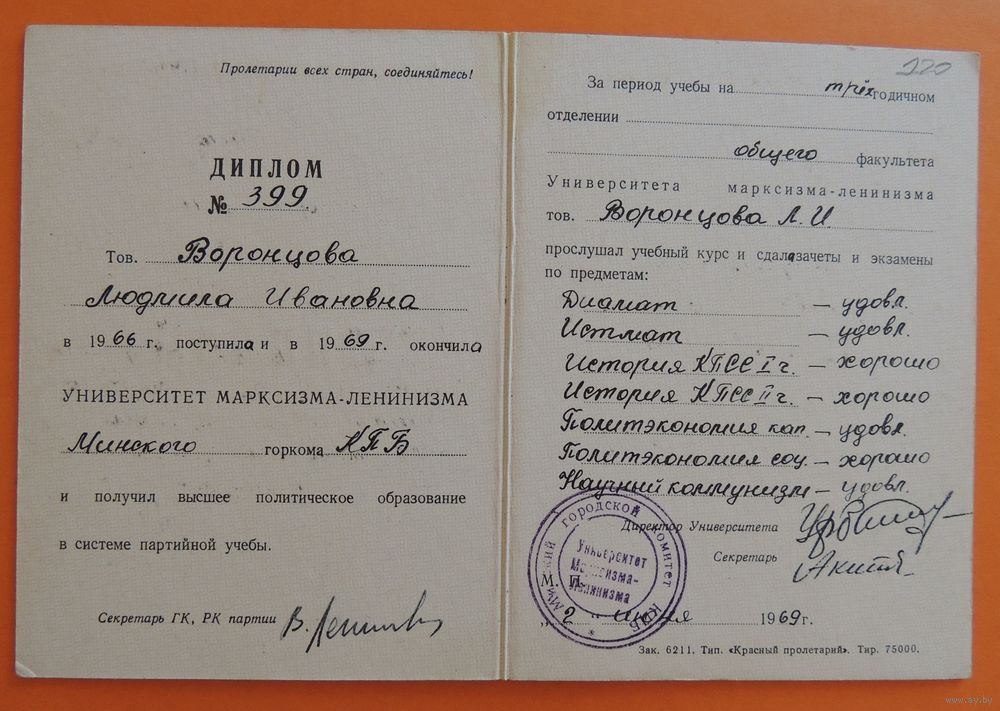 Пролетарии всех стран, соединяйтесь!
ДИПЛОМ
№ 399
Тов. Воронцова
Людмила Ивановна
в 1966 г. поступила и в 1969 г. окончила
УНИВЕРСИТЕТ МАРКСИЗМА-ЛЕНИНИЗМА
Минского горкома КПБ
и получил высшее политическое образование
в системе партийной учебы.
Секретарь ГК, РК партии
220
За период учебы на трёхгодичном
отделении
общего факультета
Университета марксизма-ленинизма
тов. Воронцова Л. И.
прослушал учебный курс и сдала зачеты и экзамены
по предметам:
Диамат — удовл.
Истмат — удовл.
История КПСС I ч. — хорошо
История КПСС II ч. — хорошо
Политэкономия кап. — удовл.
Политэкономия соц. — хорошо
Научный коммунизм — удовл.
Директор Университета
Секретарь
М. П.
МИНСКИЙ ГОРОДСКОЙ КОМИТЕТ КПБ
Университет
Марксизма-
Ленинизма
„2" июня 1969 г.
Зак. 6211. Тип. «Красный пролетарий». Тир. 75000.
www.ay.by